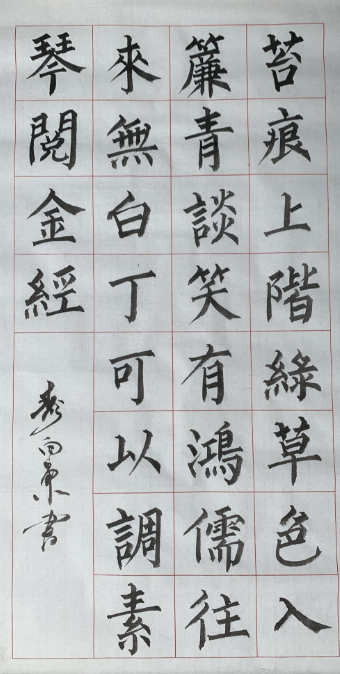 苔痕上階綠草色入
簾青談笑有鴻儒往
來無白丁可以調素
琴閱金經
書